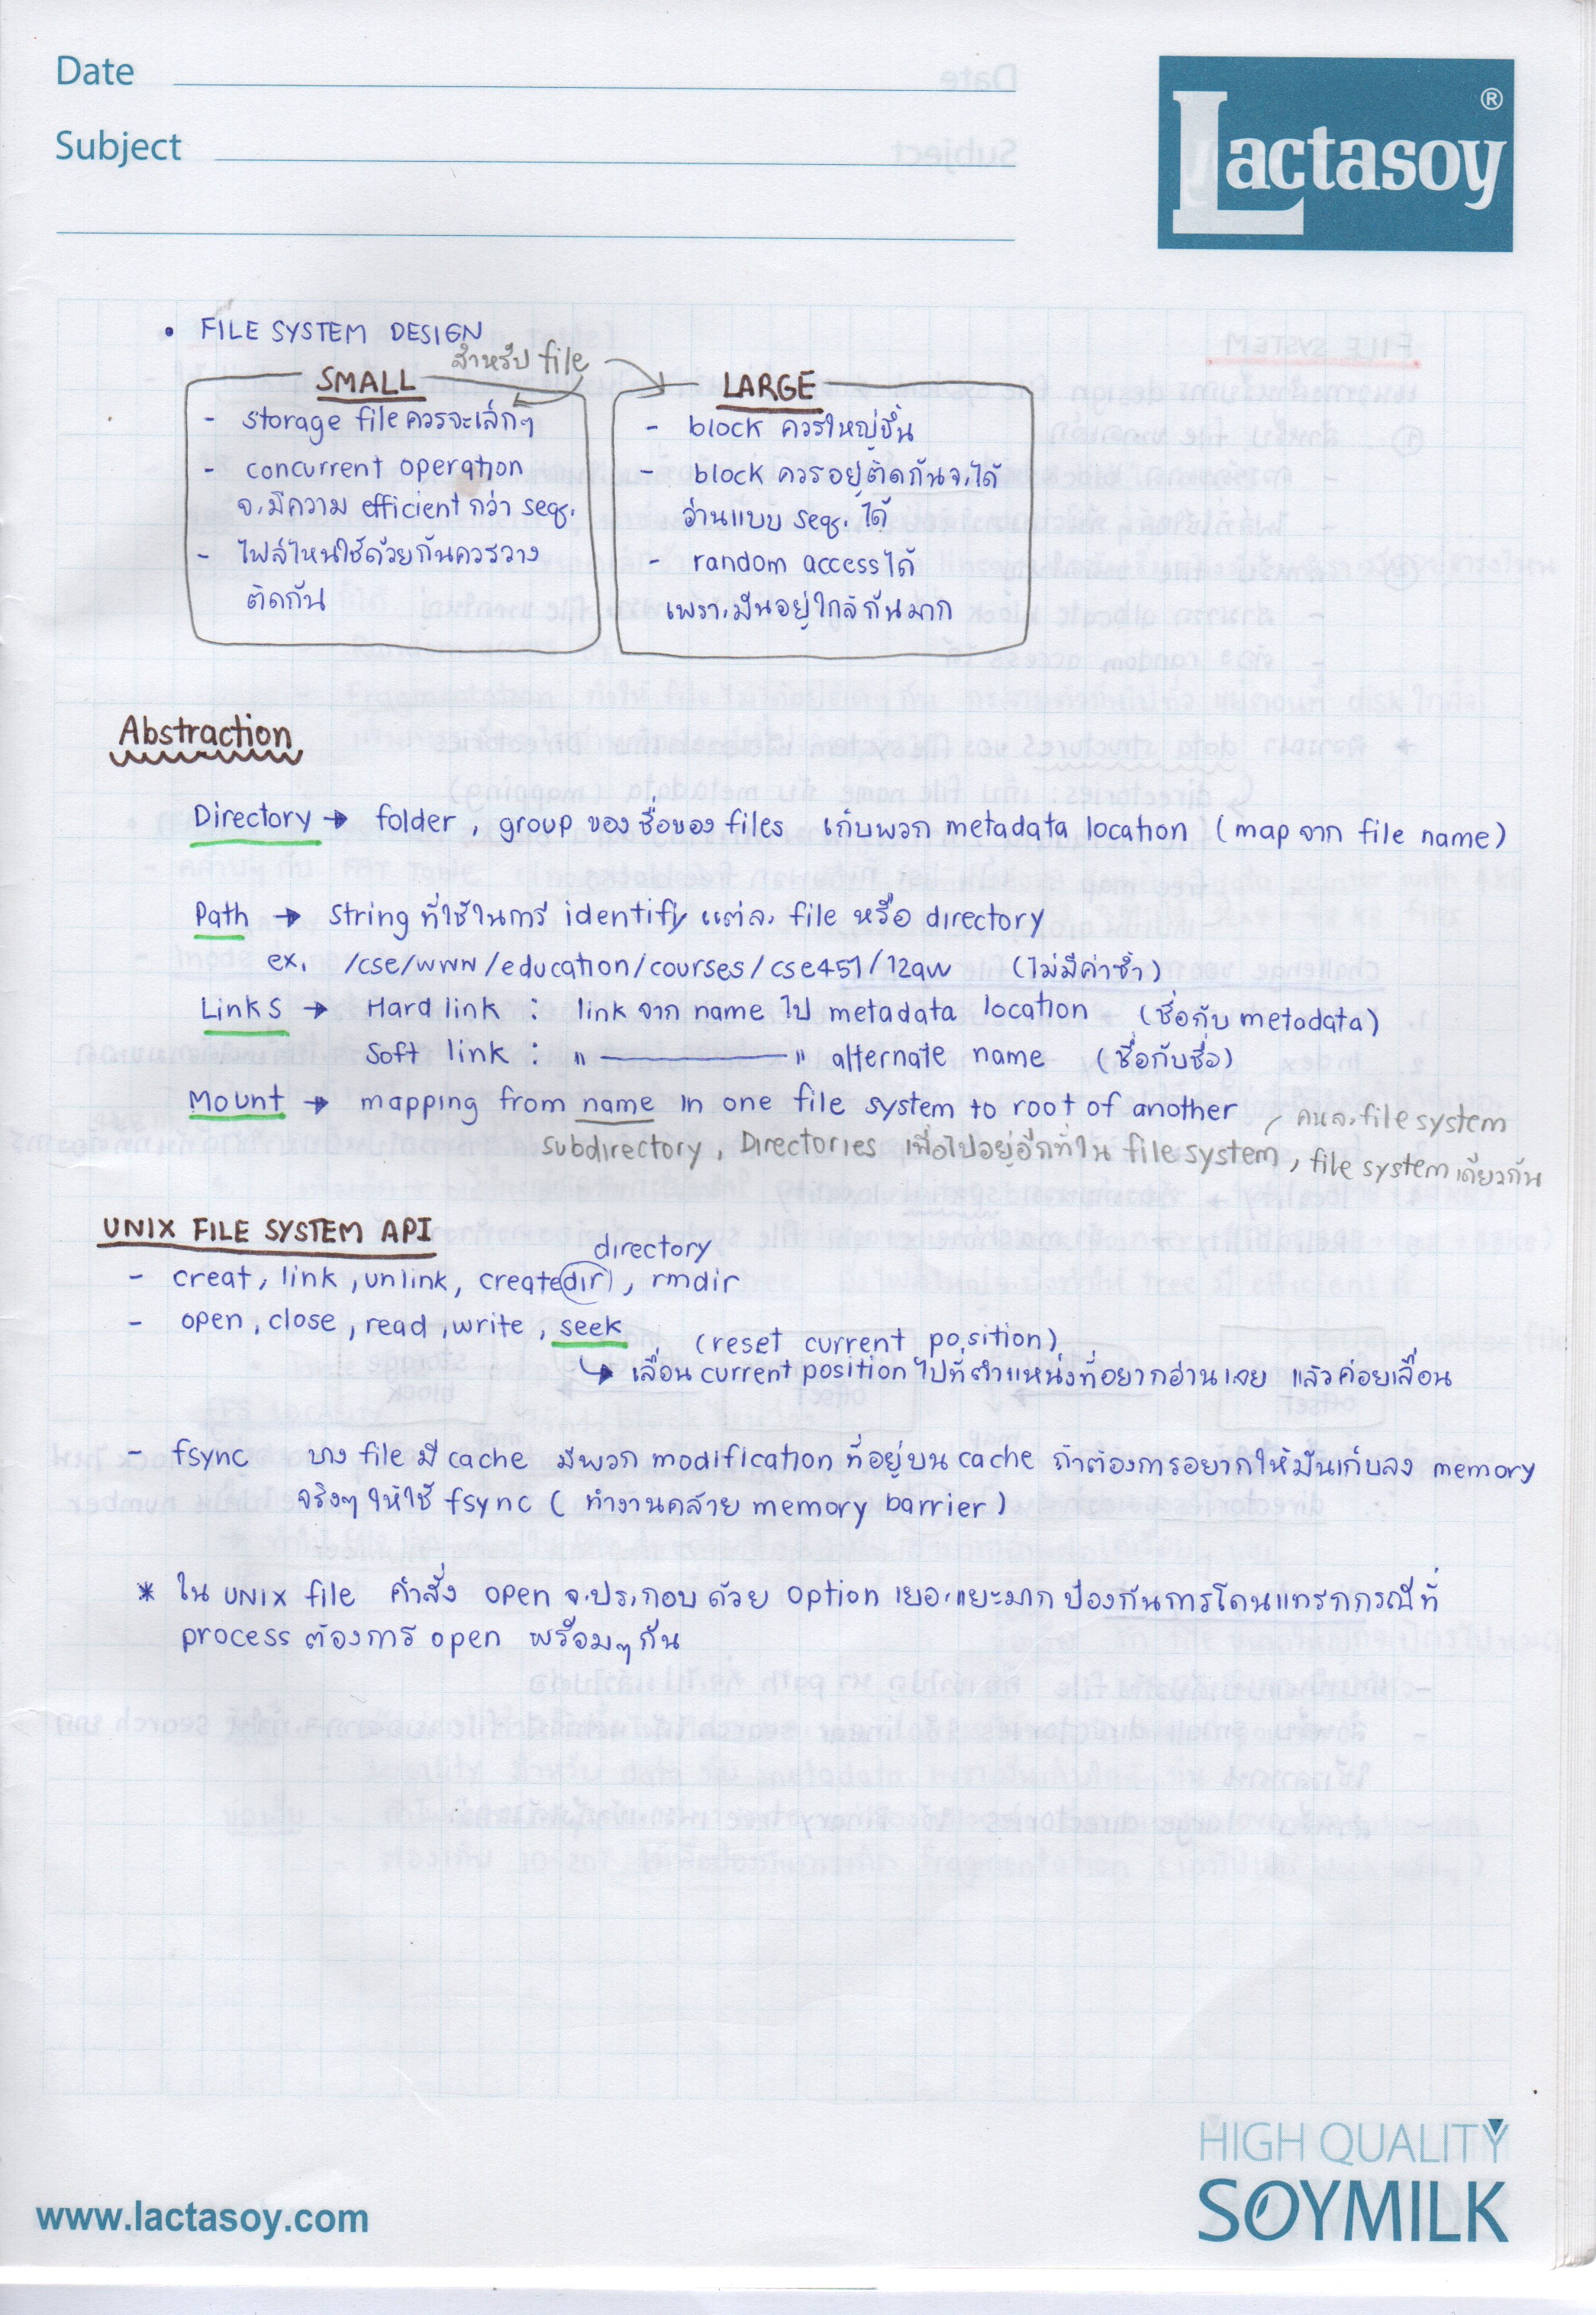 Date
Subject
Lactasoy ®
• FILE SYSTEM DESIGN
สำหรับ file
SMALL
- storage file ควรจะเล็กๆ
- concurrent operation
จะมีความ efficient กว่า seq.
- ไฟล์ไหนใช้ด้วยกันควรวาง
ติดกัน
LARGE
- block ควรใหญ่ขึ้น
- block ควรอยู่ติดกันจะได้
อ่านแบบ seq. ได้
- random access ได้
เพราะมันอยู่ใกล้กันมาก
Abstraction
Directory → folder , group ของชื่อของ files เก็บพวก metadata location ( map จาก file name )
Path → string ที่ใช้ในการ identify แต่ละ file หรือ directory
ex. /cse/www/education/courses/cse451/12aw (ไม่มีค่าซ้ำ)
Links → Hard link : link จาก name ไป metadata location (ชื่อกับ metadata)
Soft link : " ———— " alternate name (ชื่อกับชื่อ)
Mount → mapping from name in one file system to root of another
คนละ file system
subdirectory , Directories เพื่อไปอยู่อีกที่ใน file system , file system เดียวกัน
UNIX FILE SYSTEM API
directory
- creat, link , unlink, createdir , rmdir
- open , close , read , write , seek (reset current position)
↳ เลื่อน current position ไปที่ตำแหน่งที่อยากอ่านเลย แล้วค่อยเลื่อน
- fsync บาง file มี cache มีพวก modification ที่อยู่บน cache ถ้าต้องการอยากให้มันเก็บลง memory
จริงๆ ให้ใช้ fsync ( ทำงานคล้าย memory barrier )
* ใน UNIX file คำสั่ง open จะประกอบด้วย option เยอะแยะมาก ป้องกันการโดนแทรกกรณีที่
process ต้องการ open พร้อมๆ กัน
HIGH QUALITY
SOYMILK
www.lactasoy.com